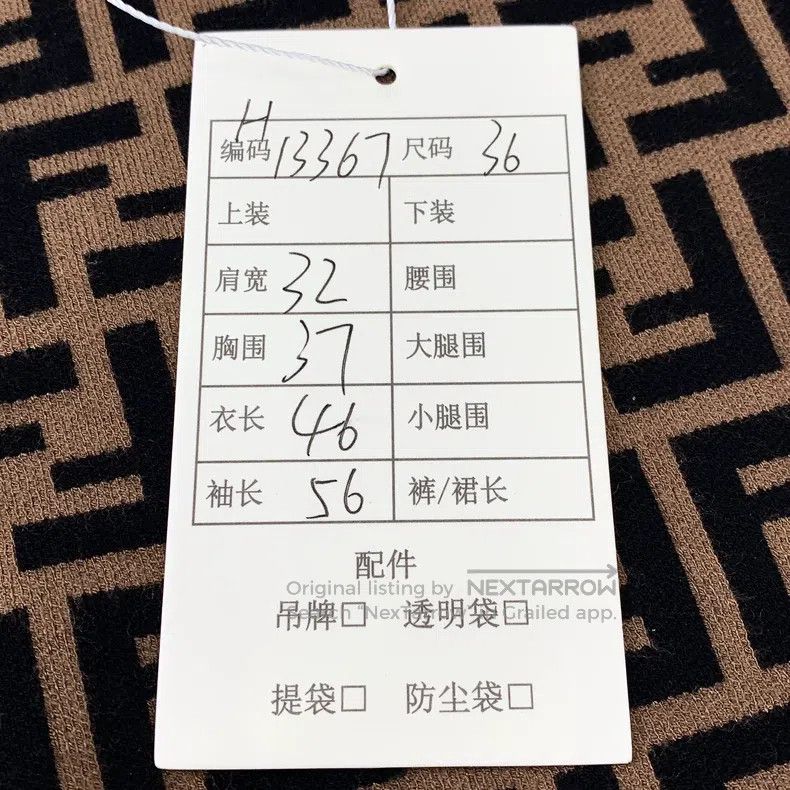 编码 H13367 尺码 36
上装 下装
肩宽 32 腰围
胸围 37 大腿围
衣长 46 小腿围
袖长 56 裤/裙长
配件
Original listing by NEXTARROW
吊牌□ 透明袋□
Grailed app.
提袋□ 防尘袋□